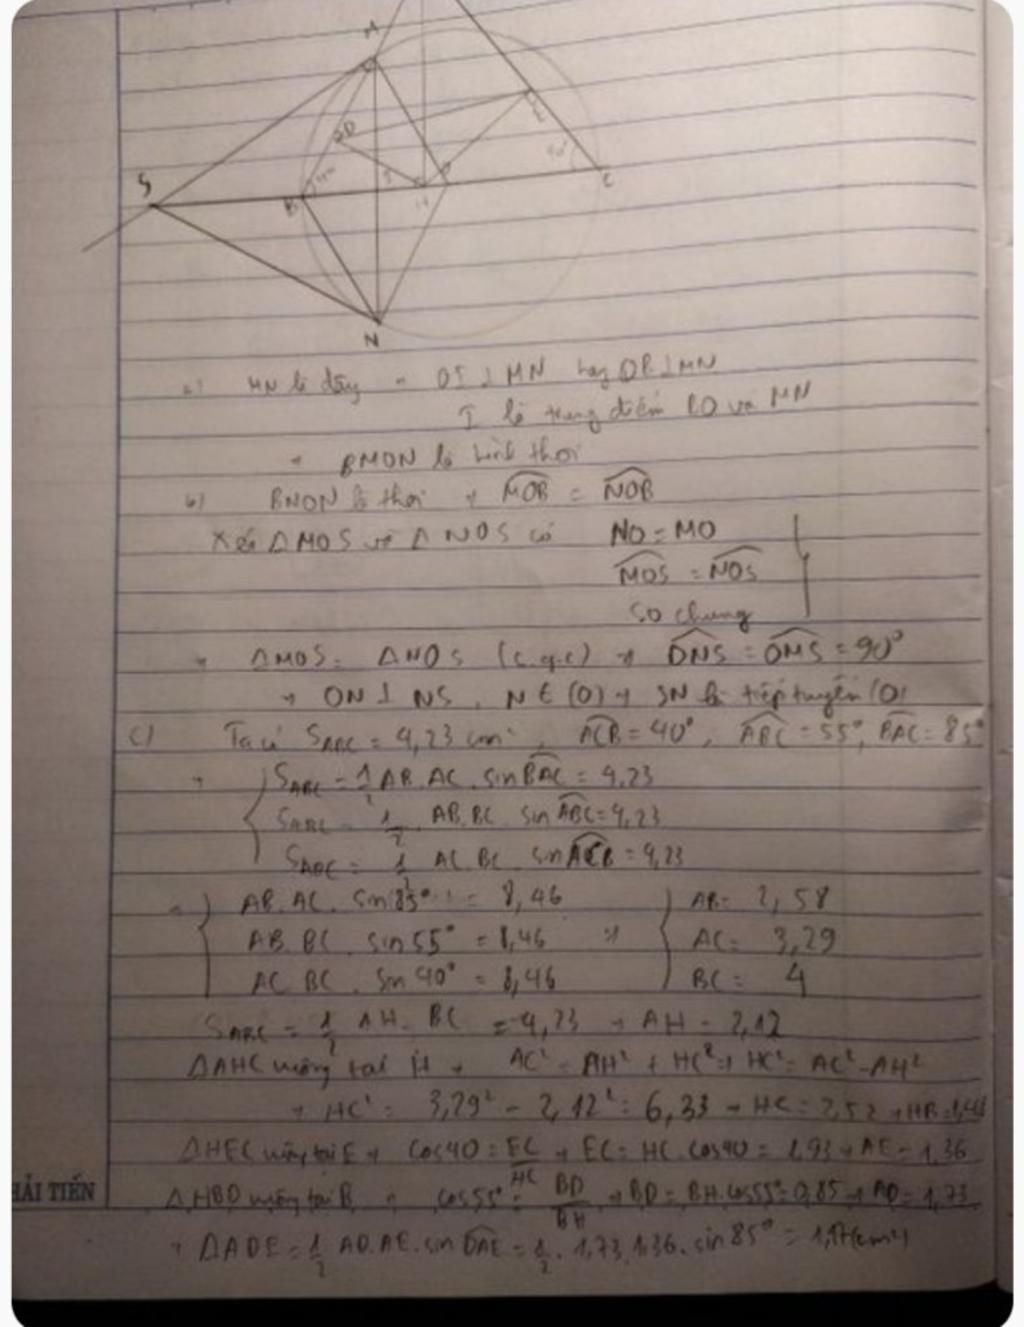 M
D
E
S
40°
B
I
H
O
C
N
a) MN là dây → OI ⊥ MN hay OB ⊥ MN
I là trung điểm BO và MN
→ BMON là hình thoi
b) BMON là thoi → MOB = NOB
Xét ΔMOS và ΔNOS có NO = MO
MOS = NOS
SO chung
→ ΔMOS = ΔNOS (c.g.c) → ONS = OMS = 90°
→ ON ⊥ NS, N ∈ (O) → SN là tiếp tuyến (O)
c) Ta có S_ABC = 4,23 cm², ACB = 40°, ABC = 55°, BAC = 85°
→ S_ABC = 1/2 AB.AC.sin BAC = 4,23
S_ABC = 1/2 AB.BC sin ABC = 4,23
S_ABC = 1/2 AC.BC sin ACB = 4,23
→ AB.AC.sin 85° = 8,46 AB = 2,58
AB.BC.sin 55° = 8,46 → AC = 3,29
AC.BC.sin 40° = 8,46 BC = 4
S_ABC = 1/2 AH.BC = 4,23 → AH = 2,12
ΔAHC vuông tại H → AC² = AH² + HC² → HC² = AC² - AH²
→ HC² = 3,29² - 2,12² = 6,33 → HC = 2,52 → HB = 1,48
ΔHEC vuông tại E → cos 40 = EC/HC → EC = HC.cos 40 = 1,93 → AE = 1,36
HẢI TIẾN
ΔHBD vuông tại B → cos 55° = BD/BH → BD = BH.cos 55° = 0,85 → AD = 1,73
→ ΔADE = 1/2 AD.AE.sin DAE = 1/2.1,73.1,36.sin 85° = 1,17(cm²)